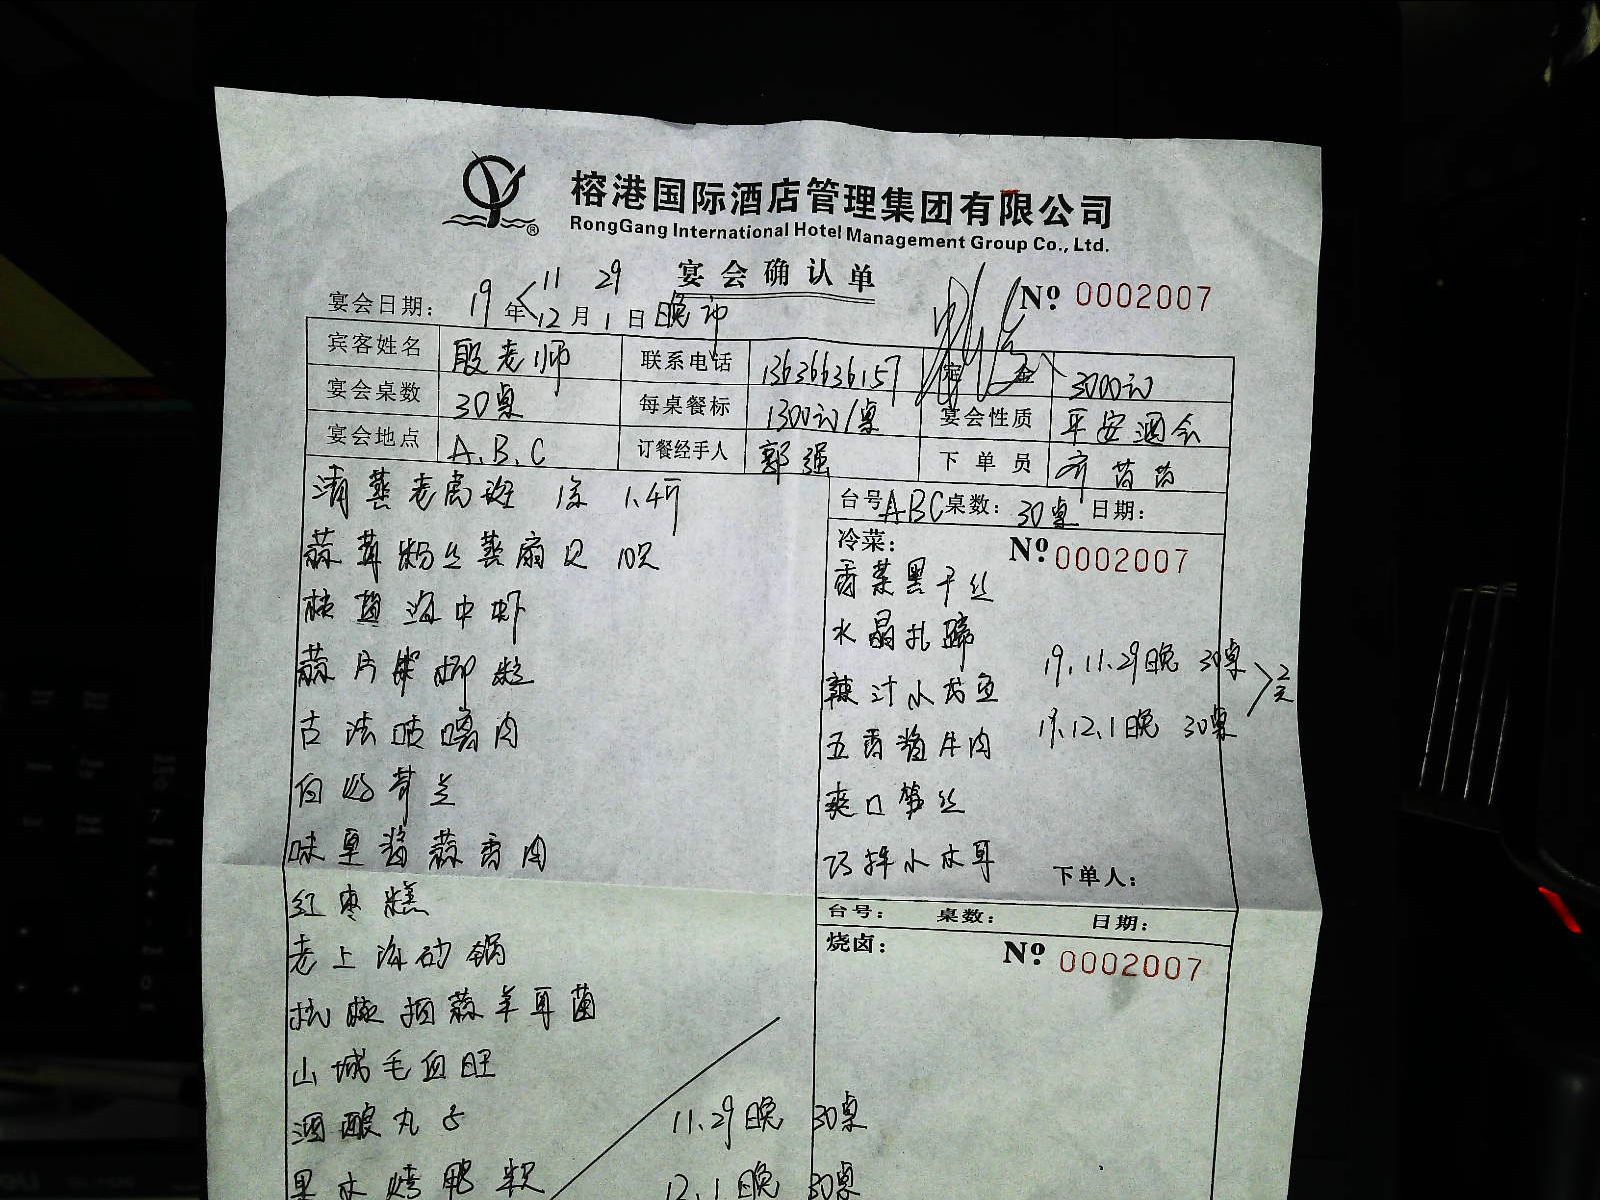 榕港国际酒店管理集团有限公司
RongGang International Hotel Management Group Co., Ltd.
宴会确认单
No 0002007
11 29
宴会日期: 19年12月1日晚
宾客姓名 殷老师 联系电话 13636636157 定金 3000元
宴会桌数 30桌 每桌餐标 1300元/桌 宴会性质 平安酒会
宴会地点 A、B、C 订餐经手人 郭强 下单员 齐茵茵
清蒸老虎斑 1条 1.4斤
蒜茸粉丝蒸扇贝 10只
海中虾
蒜片 柳粒
古法咕噜肉
白灼芥兰
味皇酱蒜香肉
红枣糕
老上海砂锅
羊耳菌
山城毛血旺
酒酿丸子
果木烤鸭
11.29晚 30桌
12.1晚 30桌
台号ABC桌数: 30桌 日期:
冷菜: No 0002007
香菜黑干丝
水晶扎蹄
辣汁小龙鱼
五香酱牛肉
爽口笋丝
巧拌小木耳
19.11.29晚 30桌
19.12.1晚 30桌
2天
下单人:
台号: 桌数: 日期:
烧卤: No 0002007